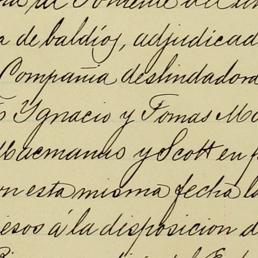 de baldíos, adjudicad
Compañia deslindadora
Ygnacio y Tomas Ma
Macmanus y Scott en f
on esta misma fecha la
esos á la disposicion d